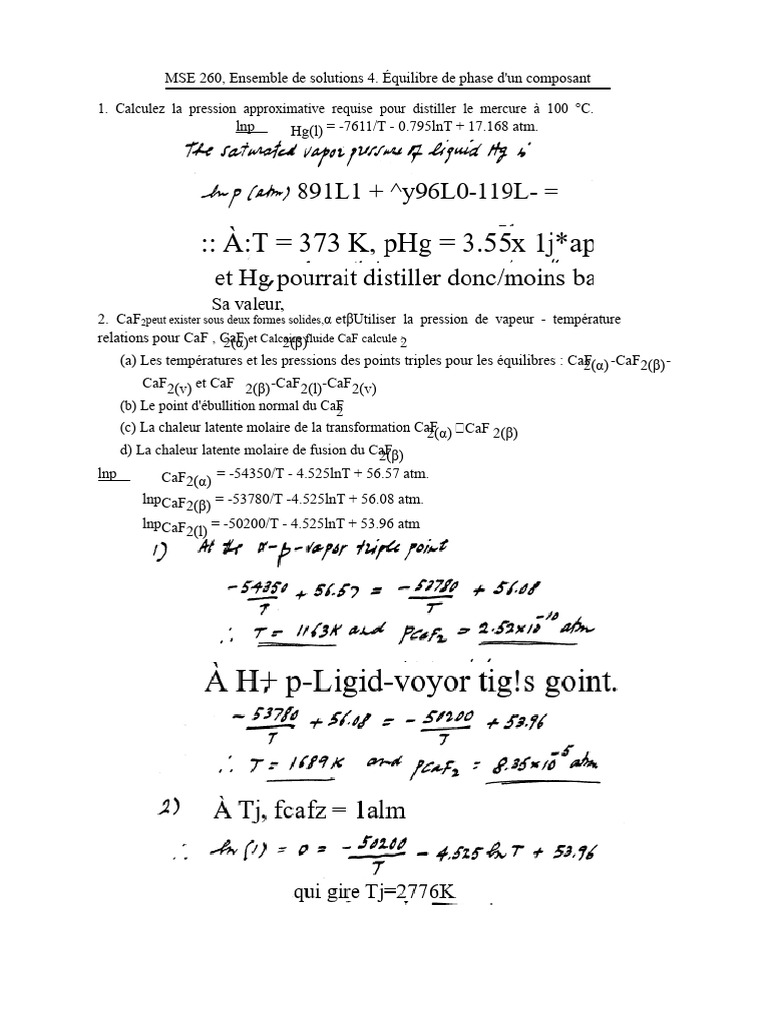 MSE 260, Ensemble de solutions 4. Équilibre de phase d'un composant
1. Calculez la pression approximative requise pour distiller le mercure à 100 °C.
lnp Hg(l) = -7611/T - 0.795lnT + 17.168 atm.
The saturated vapor pressure of liquid Hg is
ln p (atm) 891L1 + ^y96L0-119L- =
:: À:T = 373 K, pHg = 3.55x 1j*ap
et Hg pourrait distiller donc/moins ba
Sa valeur,
2. CaF2peut exister sous deux formes solides,α etβUtiliser la pression de vapeur - température
relations pour CaF , CaF2(α) et Calcaire2(β)fluide CaF calcule : 2
(a) Les températures et les pressions des points triples pour les équilibres : CaF2(α)-CaF2(β)-
CaF2(v) et CaF 2(β)-CaF2(l)-CaF2(v)
(b) Le point d'ébullition normal du CaF2
(c) La chaleur latente molaire de la transformation CaF2(α) □CaF 2(β)
d) La chaleur latente molaire de fusion du CaF2(β)
lnp CaF2(α) = -54350/T - 4.525lnT + 56.57 atm.
lnpCaF2(β) = -53780/T -4.525lnT + 56.08 atm.
lnpCaF2(l) = -50200/T - 4.525lnT + 53.96 atm
1) At the α-β-vapor triple point
-54350/T + 56.57 = -53780/T + 56.08
∴ T = 1163K and pCaF2 = 2.52×10^-10 atm
À H, p-Ligid-voyor tig!s goint.
-53780/T + 56.08 = -50200/T + 53.96
∴ T = 1689K and pCaF2 = 8.35×10^-5 atm
2) À Tj, fcafz = 1alm
∴ ln(1) = 0 = -50200/T - 4.525 ln T + 53.96
qui gire Tj=2776K